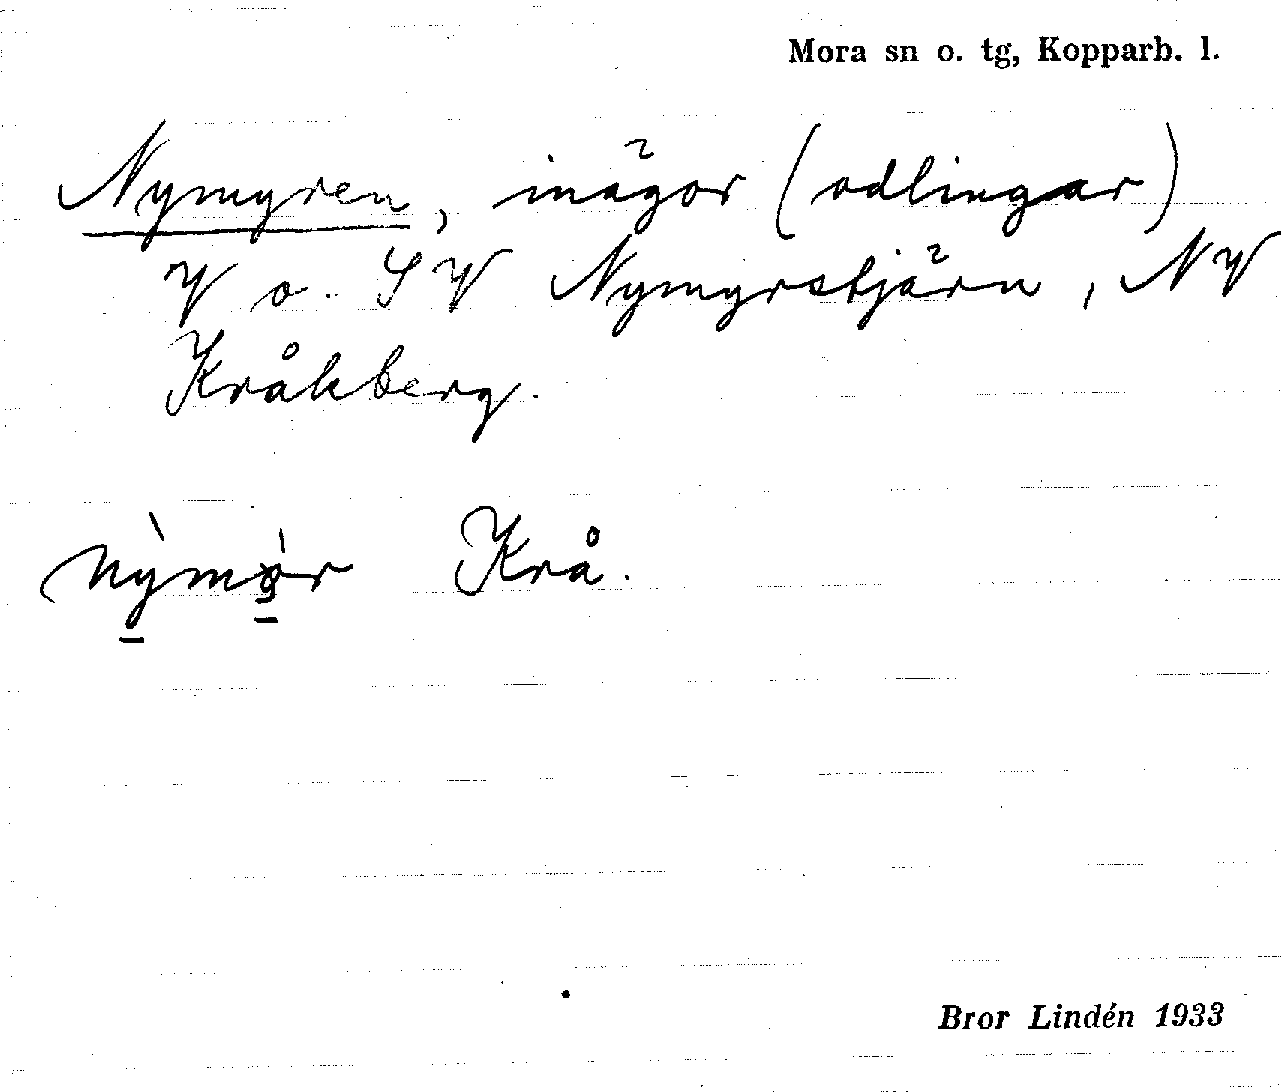 Mora sn o. tg, Kopparb. l.
Nymyren, inägor (odlingar)
V o. SV Nymyrstjärn, NV
Kråkberg.
Krå.
Bror Lindén 1933